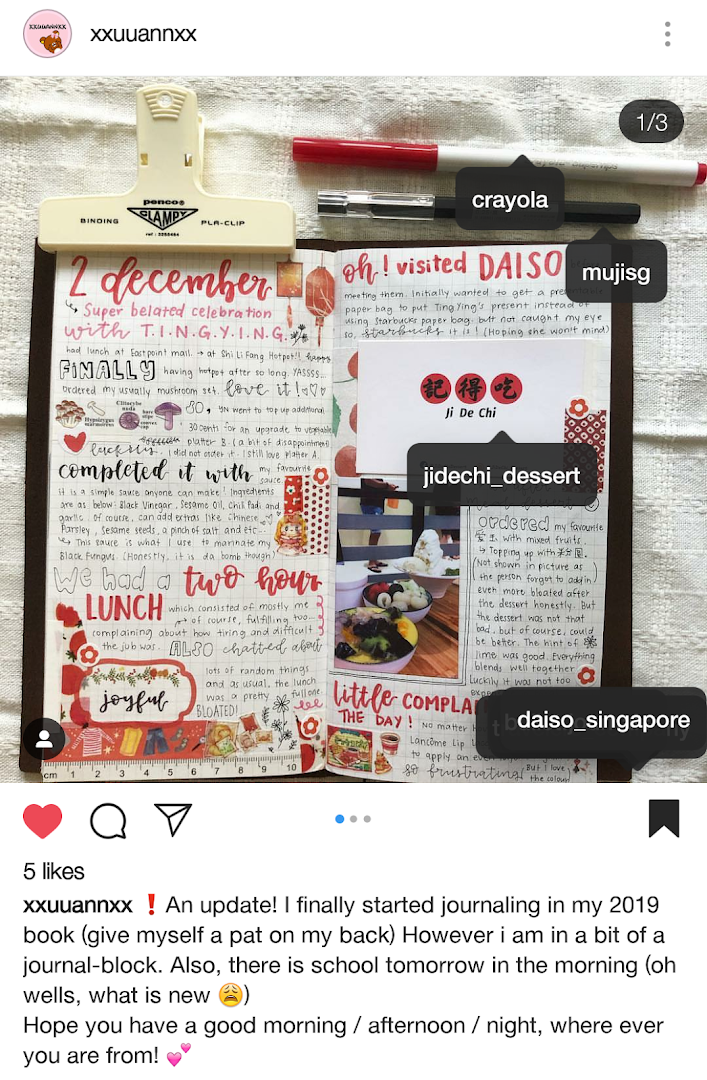 XXUUANNXX
xxuuannxx
1/3
crayola
mujisg
penco®
BINDING CLAMPY PLA-CLIP
2 december
↳ Super belated celebration
with T.I.N.G.Y.I.N.G.
had lunch at Eastpoint mall. → at Shi Li Fang Hotpot!!
FINALLY having hotpot after so long. YASSSS...
Ordered my usually mushroom set. love it!♡♡♡
Hypsizygus marmoreus
Clitocybe nuda
YN went to top up additional
30 cents for an upgrade to vegetable
platter B. (a bit of disappointment)
luckily. I did not order it. I still love Platter A.
completed it with my favourite sauce
It is a simple sauce anyone can make! Ingredients
are as below: Black Vinegar, Sesame Oil, Chili Padi and
garlic. Of course, can add extras like Chinese
Parsley, Sesame seeds, a pinch of salt and etc...
↳ This sauce is what I use to marinate my
Black Fungus. (Honestly, it is da bomb though)
We had a two hour
LUNCH which consisted of mostly me
↱ of course, fulfilling too...
complaining about how tiring and difficult
the job was. ALSO chatted about
lots of random things
and as usual, the lunch
was a pretty fullone.
BLOATED!
joyful
cm 1 2 3 4 5 6 7 8 9 10
oh! visited DAISO
meeting them. Initially wanted to get a
paper bag to put TingYing's present instead of
using Starbucks paper bag. but not caught my eye
so, starbucks it is! (Hoping she won't mind)
記得吃
Ji De Chi
jidechi_dessert
ordered my favourite
with mixed fruits.
↳ Topping up with
(Not shown in picture as
the person forgot to add in)
even more bloated after
the dessert honestly. But
the dessert was not that
bad. but of course, could
be better. The hint of
lime was good. Everything
blends well together.
Luckily it was not too
little COMPLA
THE DAY! No matter
Lancôme Lip
to apply an
so frustrating! But I love
the colour
daiso_singapore
5 likes
xxuuannxx ❗ An update! I finally started journaling in my 2019
book (give myself a pat on my back) However i am in a bit of a
journal-block. Also, there is school tomorrow in the morning (oh
wells, what is new 😩)
Hope you have a good morning / afternoon / night, where ever
you are from! 💕